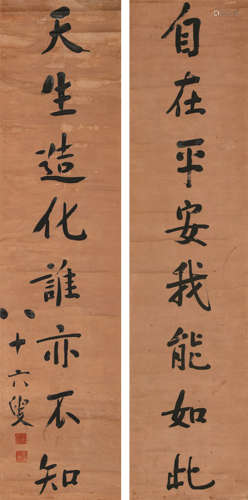 自在平安我能如此
天生造化誰亦不知
八十六叟